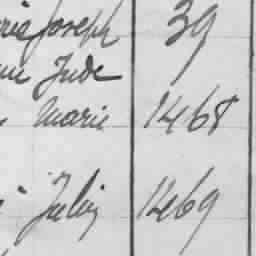 Joseph 39
Jude
Marie 1468
Julin 1469